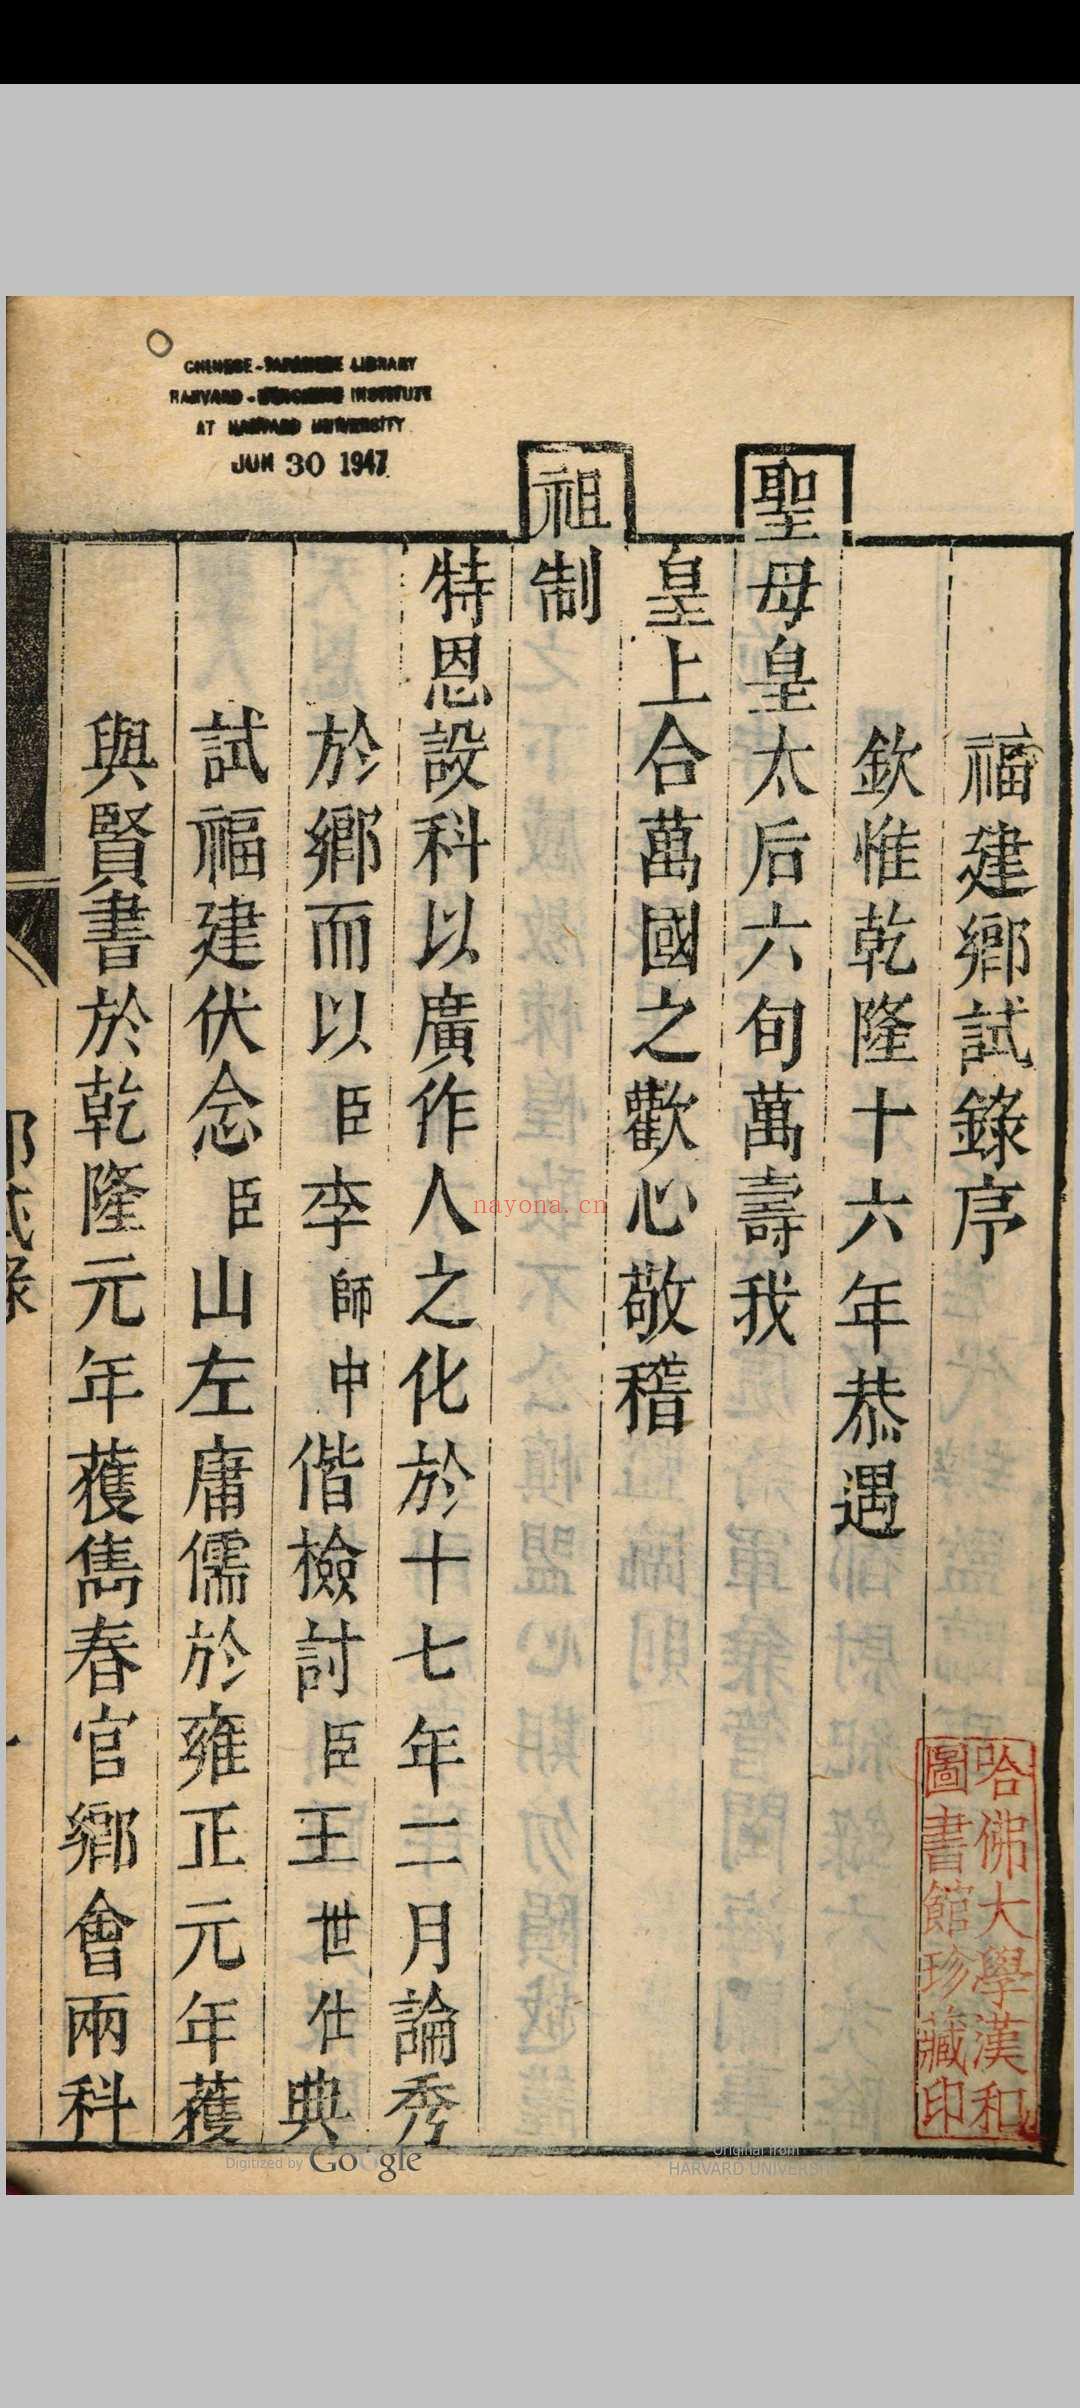 福建鄉試錄序
欽惟乾隆十六年恭遇
聖母皇太后六旬萬壽我
皇上合萬國之歡心敬稽
祖制
特恩設科以廣作人之化於十七年二月論秀
於鄉而以臣李師中偕檢討臣王世仕典
試福建伏念臣山左庸儒於雍正元年獲
與賢書於乾隆元年獲雋春官鄉會兩科
哈佛大學漢和
圖書館珍藏印
CHINESE-JAPANESE LIBRARY
HARVARD-YENCHING INSTITUTE
AT HARVARD UNIVERSITY
JUN 30 1947
nayona.cn
Digitized by Google
Original from
HARVARD UNIVERSITY